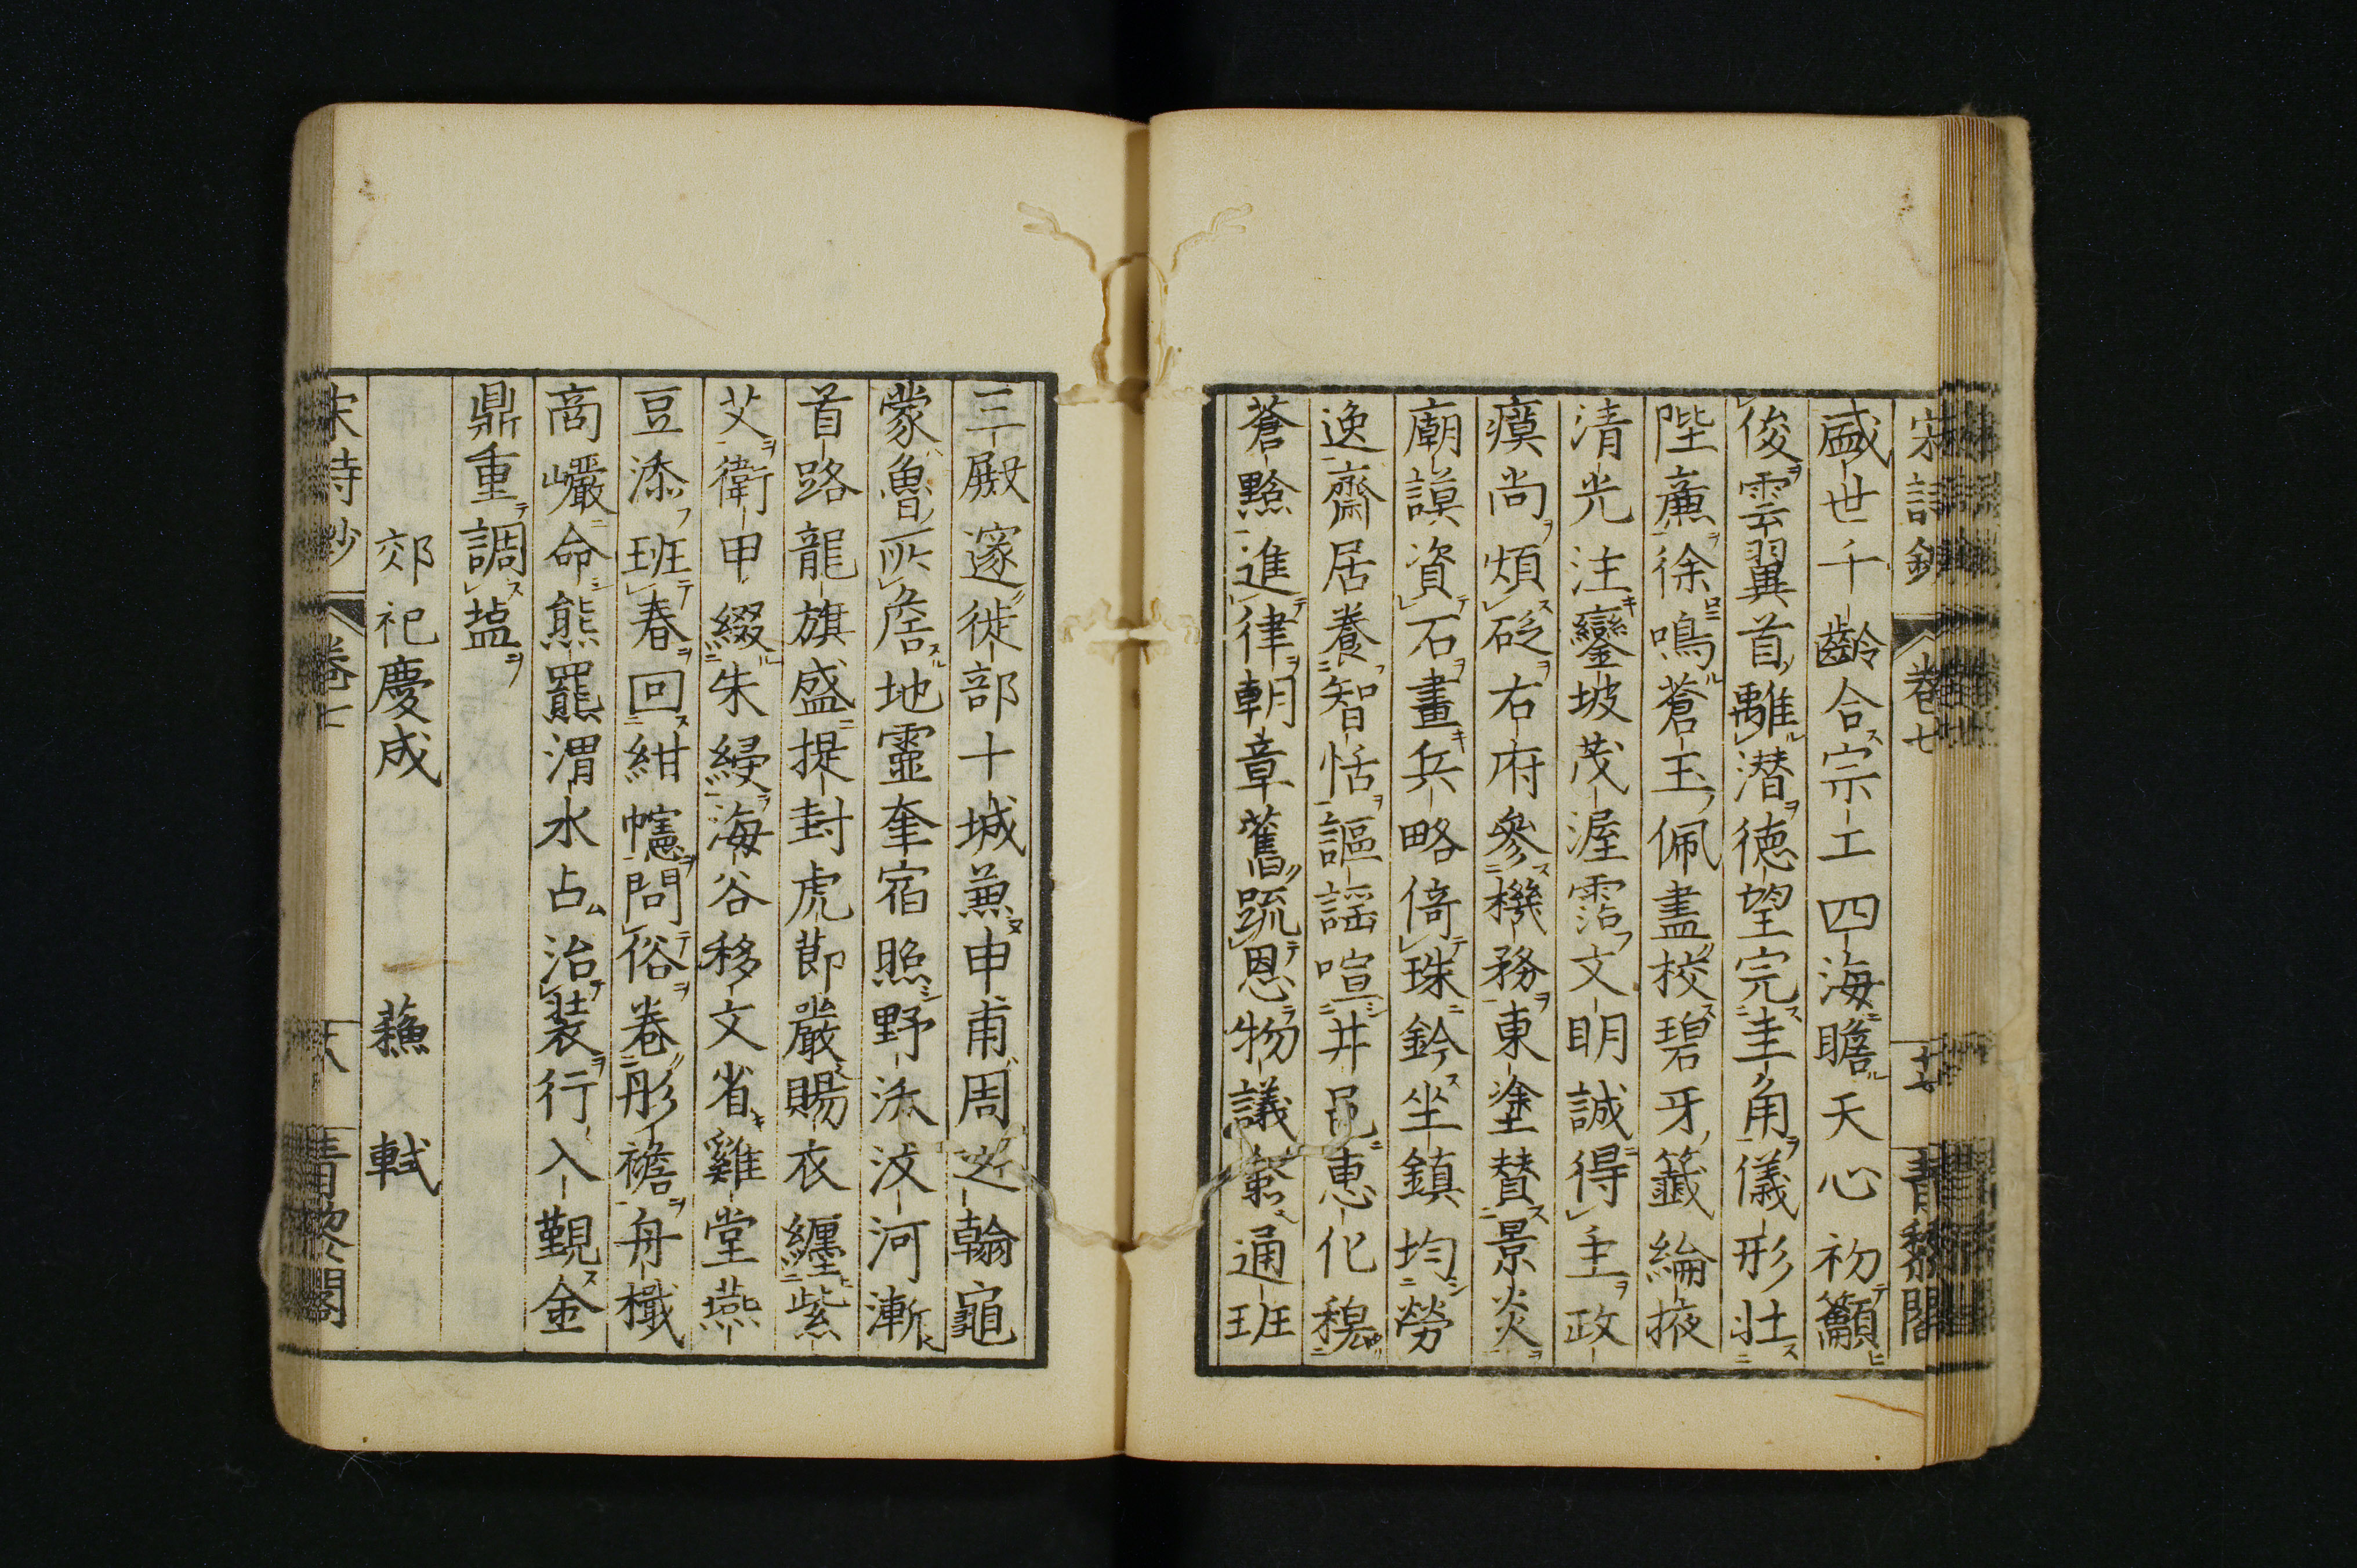 宋詩鈔 卷七 十七 青藜閣
盛世千齡合宗工四海瞻天心初籲
俊雲翼首離潜徳望完圭角儀形壮
陛廉徐鳴蒼玉佩盡校碧牙籤綸掖
清光注鑾坡茂渥霑文明誠得主政
瘼尚煩砭右府參機務東塗賛景炎
廟謨資石畫兵略倚珠鈐坐鎮均勞
逸齋居養智恬謳謡喧井邑恵化穆
蒼黔進律朝章舊疏恩物議通班
三殿邃徙部十城兼申甫周之翰龜
蒙魯所詹地靈奎宿照野沃汶河漸
首路龍旗盛提封虎節嚴賜衣纒紫
艾衛甲綴朱綅海谷移文省雞堂燕
豆添班春回紺幰問俗卷彤襜舟檝
商巖命熊羆渭水占治装行入覲金
鼎重調塩
郊祀慶成 蘓軾
宋詩鈔 卷七 十八 青藜閣